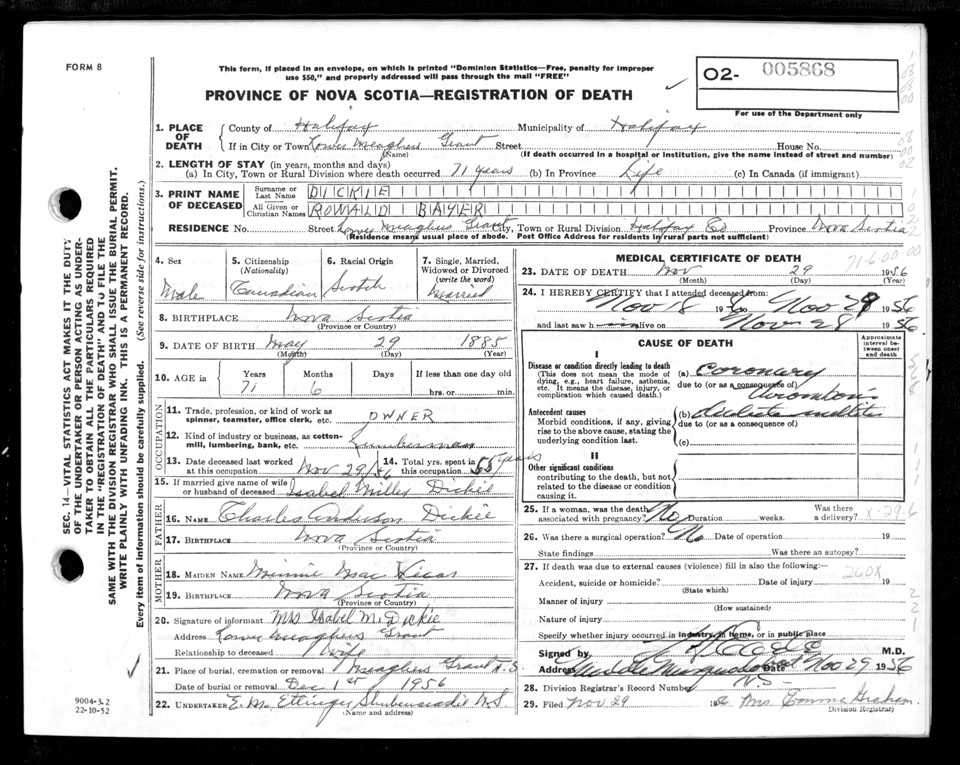 FORM 8
This form, if placed in an envelope, on which is printed "Dominion Statistics—Free, penalty for improper
use $50," and properly addressed will pass through the mail "FREE"
PROVINCE OF NOVA SCOTIA—REGISTRATION OF DEATH
O2- 005868
For use of the Department only
1. PLACE OF DEATH
County of Halifax Municipality of Halifax
If in City or Town Lower Meaghers Grant Street House No.
(Name) (If death occurred in a hospital or institution, give the name instead of street and number)
2. LENGTH OF STAY (in years, months and days)
(a) In City, Town or Rural Division where death occurred 71 years (b) In Province Life (c) In Canada (if immigrant)
3. PRINT NAME OF DECEASED
Surname or Last Name DICKIE
All Given or Christian Names RONALD BAYER
RESIDENCE No. Street Lower Meaghers Grant City, Town or Rural Division Halifax Co Province Nova Scotia
(Residence means usual place of abode. Post Office Address for residents in rural parts not sufficient)
4. Sex Male
5. Citizenship (Nationality) Canadian
6. Racial Origin Scotch
7. Single, Married, Widowed or Divorced (write the word) Married
8. BIRTHPLACE Nova Scotia
(Province or Country)
9. DATE OF BIRTH May 29 1885
(Month) (Day) (Year)
10. AGE in Years Months Days If less than one day old
71 6 hrs. or min.
OCCUPATION
11. Trade, profession, or kind of work as spinner, teamster, office clerk, etc. OWNER
12. Kind of industry or business, as cotton-mill, lumbering, bank, etc. Lumberman
13. Date deceased last worked at this occupation Nov 29/56
14. Total yrs. spent in this occupation 55 years
15. If married give name of wife or husband of deceased Isabel Miller Dickie
FATHER
16. NAME Charles Anderson Dickie
17. BIRTHPLACE Nova Scotia
(Province or Country)
MOTHER
18. MAIDEN NAME Minnie
19. BIRTHPLACE Nova Scotia
(Province or Country)
20. Signature of informant Mrs Isabel M. Dickie
Address Lower Meaghers Grant
Relationship to deceased Wife
21. Place of burial, cremation or removal Meaghers Grant N.S.
Date of burial or removal Dec 1st 1956
22. UNDERTAKER E. M. Ettinger Shubenacadie N.S.
(Name and address)
MEDICAL CERTIFICATE OF DEATH
71-6 00 00
23. DATE OF DEATH Nov 29 1956
(Month) (Day) (Year)
24. I HEREBY CERTIFY that I attended deceased from:
Nov 18 Nov 29 1956
and last saw him alive on Nov 28 1956
CAUSE OF DEATH
Approximate interval between onset and death
I
Disease or condition directly leading to death
(This does not mean the mode of dying, e.g., heart failure, asthenia, etc. It means the disease, injury, or complication which caused death.)
(a) Coronary
due to (or as a consequence of)
thrombosis
Antecedent causes
Morbid conditions, if any, giving rise to the above cause, stating the underlying condition last.
(b) diabetes mellitus
due to (or as a consequence of)
(c)
II
Other significant conditions
contributing to the death, but not related to the disease or condition causing it.
25. If a woman, was the death associated with pregnancy? No Duration weeks. Was there a delivery?
X-29.6
26. Was there a surgical operation? No Date of operation 19
State findings Was there an autopsy?
27. If death was due to external causes (violence) fill in also the following:—
260X
Accident, suicide or homicide? Date of injury 19
(State which)
Manner of injury
(How sustained)
Nature of injury
Specify whether injury occurred in industry, in home, or in public place
Signed by M.D.
Address Middle Musquodoboit Date Nov 29 1956
28. Division Registrar's Record Number
29. Filed Nov 29 1956 Mrs. Graham
Division Registrar)
SEC. 14—VITAL STATISTICS ACT MAKES IT THE DUTY
OF THE UNDERTAKER OR PERSON ACTING AS UNDER-
TAKER TO OBTAIN ALL THE PARTICULARS REQUIRED
IN THE "REGISTRATION OF DEATH" AND TO FILE THE
SAME WITH THE DIVISION REGISTRAR WHO SHALL ISSUE THE BURIAL PERMIT.
WRITE PLAINLY WITH UNFADING INK. THIS IS A PERMANENT RECORD.
Every item of information should be carefully supplied. (See reverse side for instructions.)
9004-3.2
22-10-52